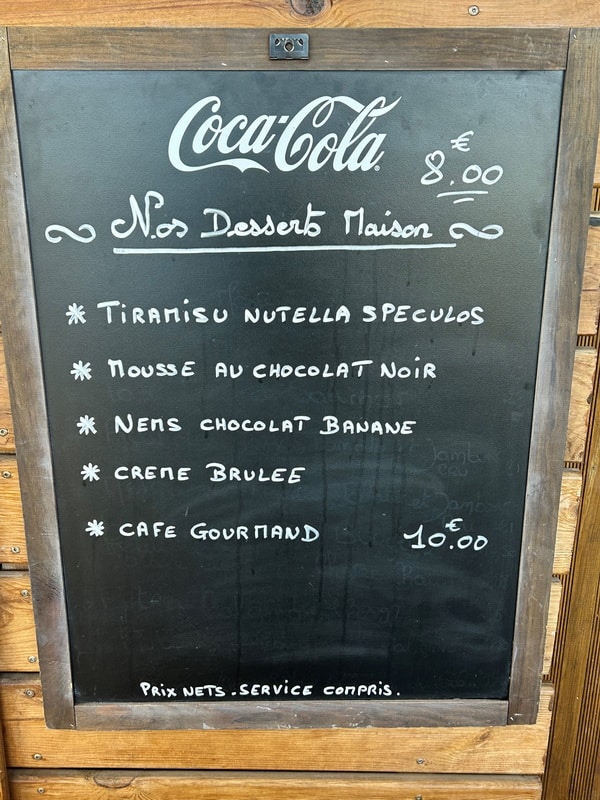 Coca-Cola
8.00€
Nos Desserts Maison
* TIRAMISU NUTELLA SPECULOS
* MOUSSE AU CHOCOLAT NOIR
* NEMS CHOCOLAT BANANE
* CREME BRULEE
* CAFE GOURMAND 10.00€
PRIX NETS. SERVICE COMPRIS.